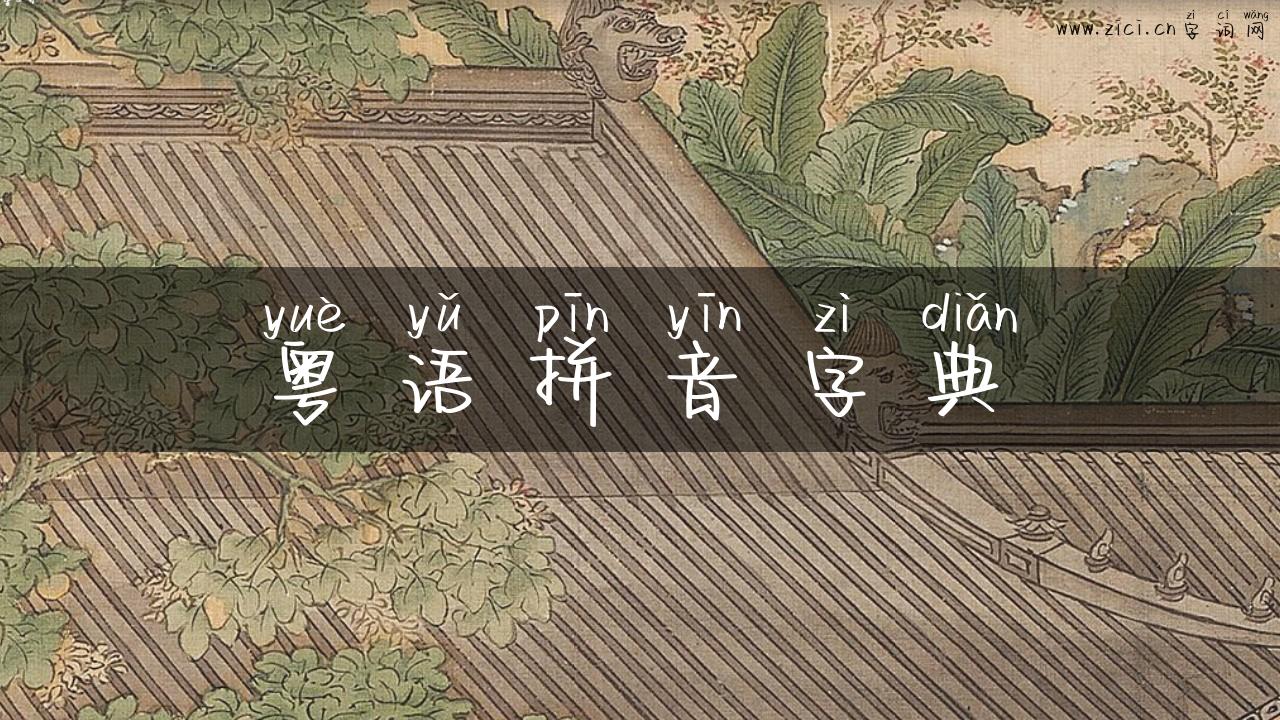 zì cí wǎng
www.zici.cn 字词网
yuè yǔ pīn yīn zì diǎn
粤语拼音字典